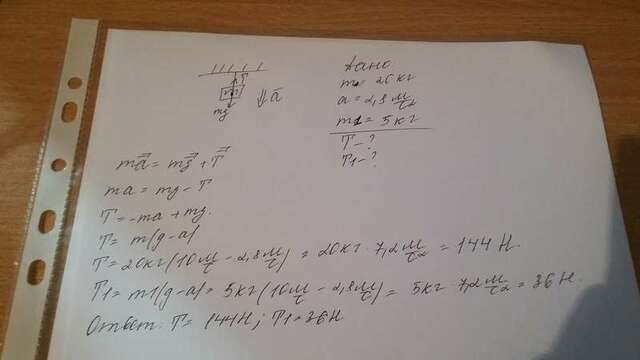 T
mg
a⃗
Дано
m = 20 кг
a = 2,8 м/с²
m1 = 5 кг
T - ?
T1 - ?
ma⃗ = mg⃗ + T⃗
ma = mg - T
T = -ma + mg.
T = m(g-a)
T = 20кг(10 м/с - 2,8 м/с) = 20кг · 7,2 м/с² = 144 Н.
T1 = m1(g-a) = 5кг(10 м/с - 2,8 м/с) = 5кг · 7,2 м/с² = 36 Н.
Ответ: T = 144Н; T1 = 36Н